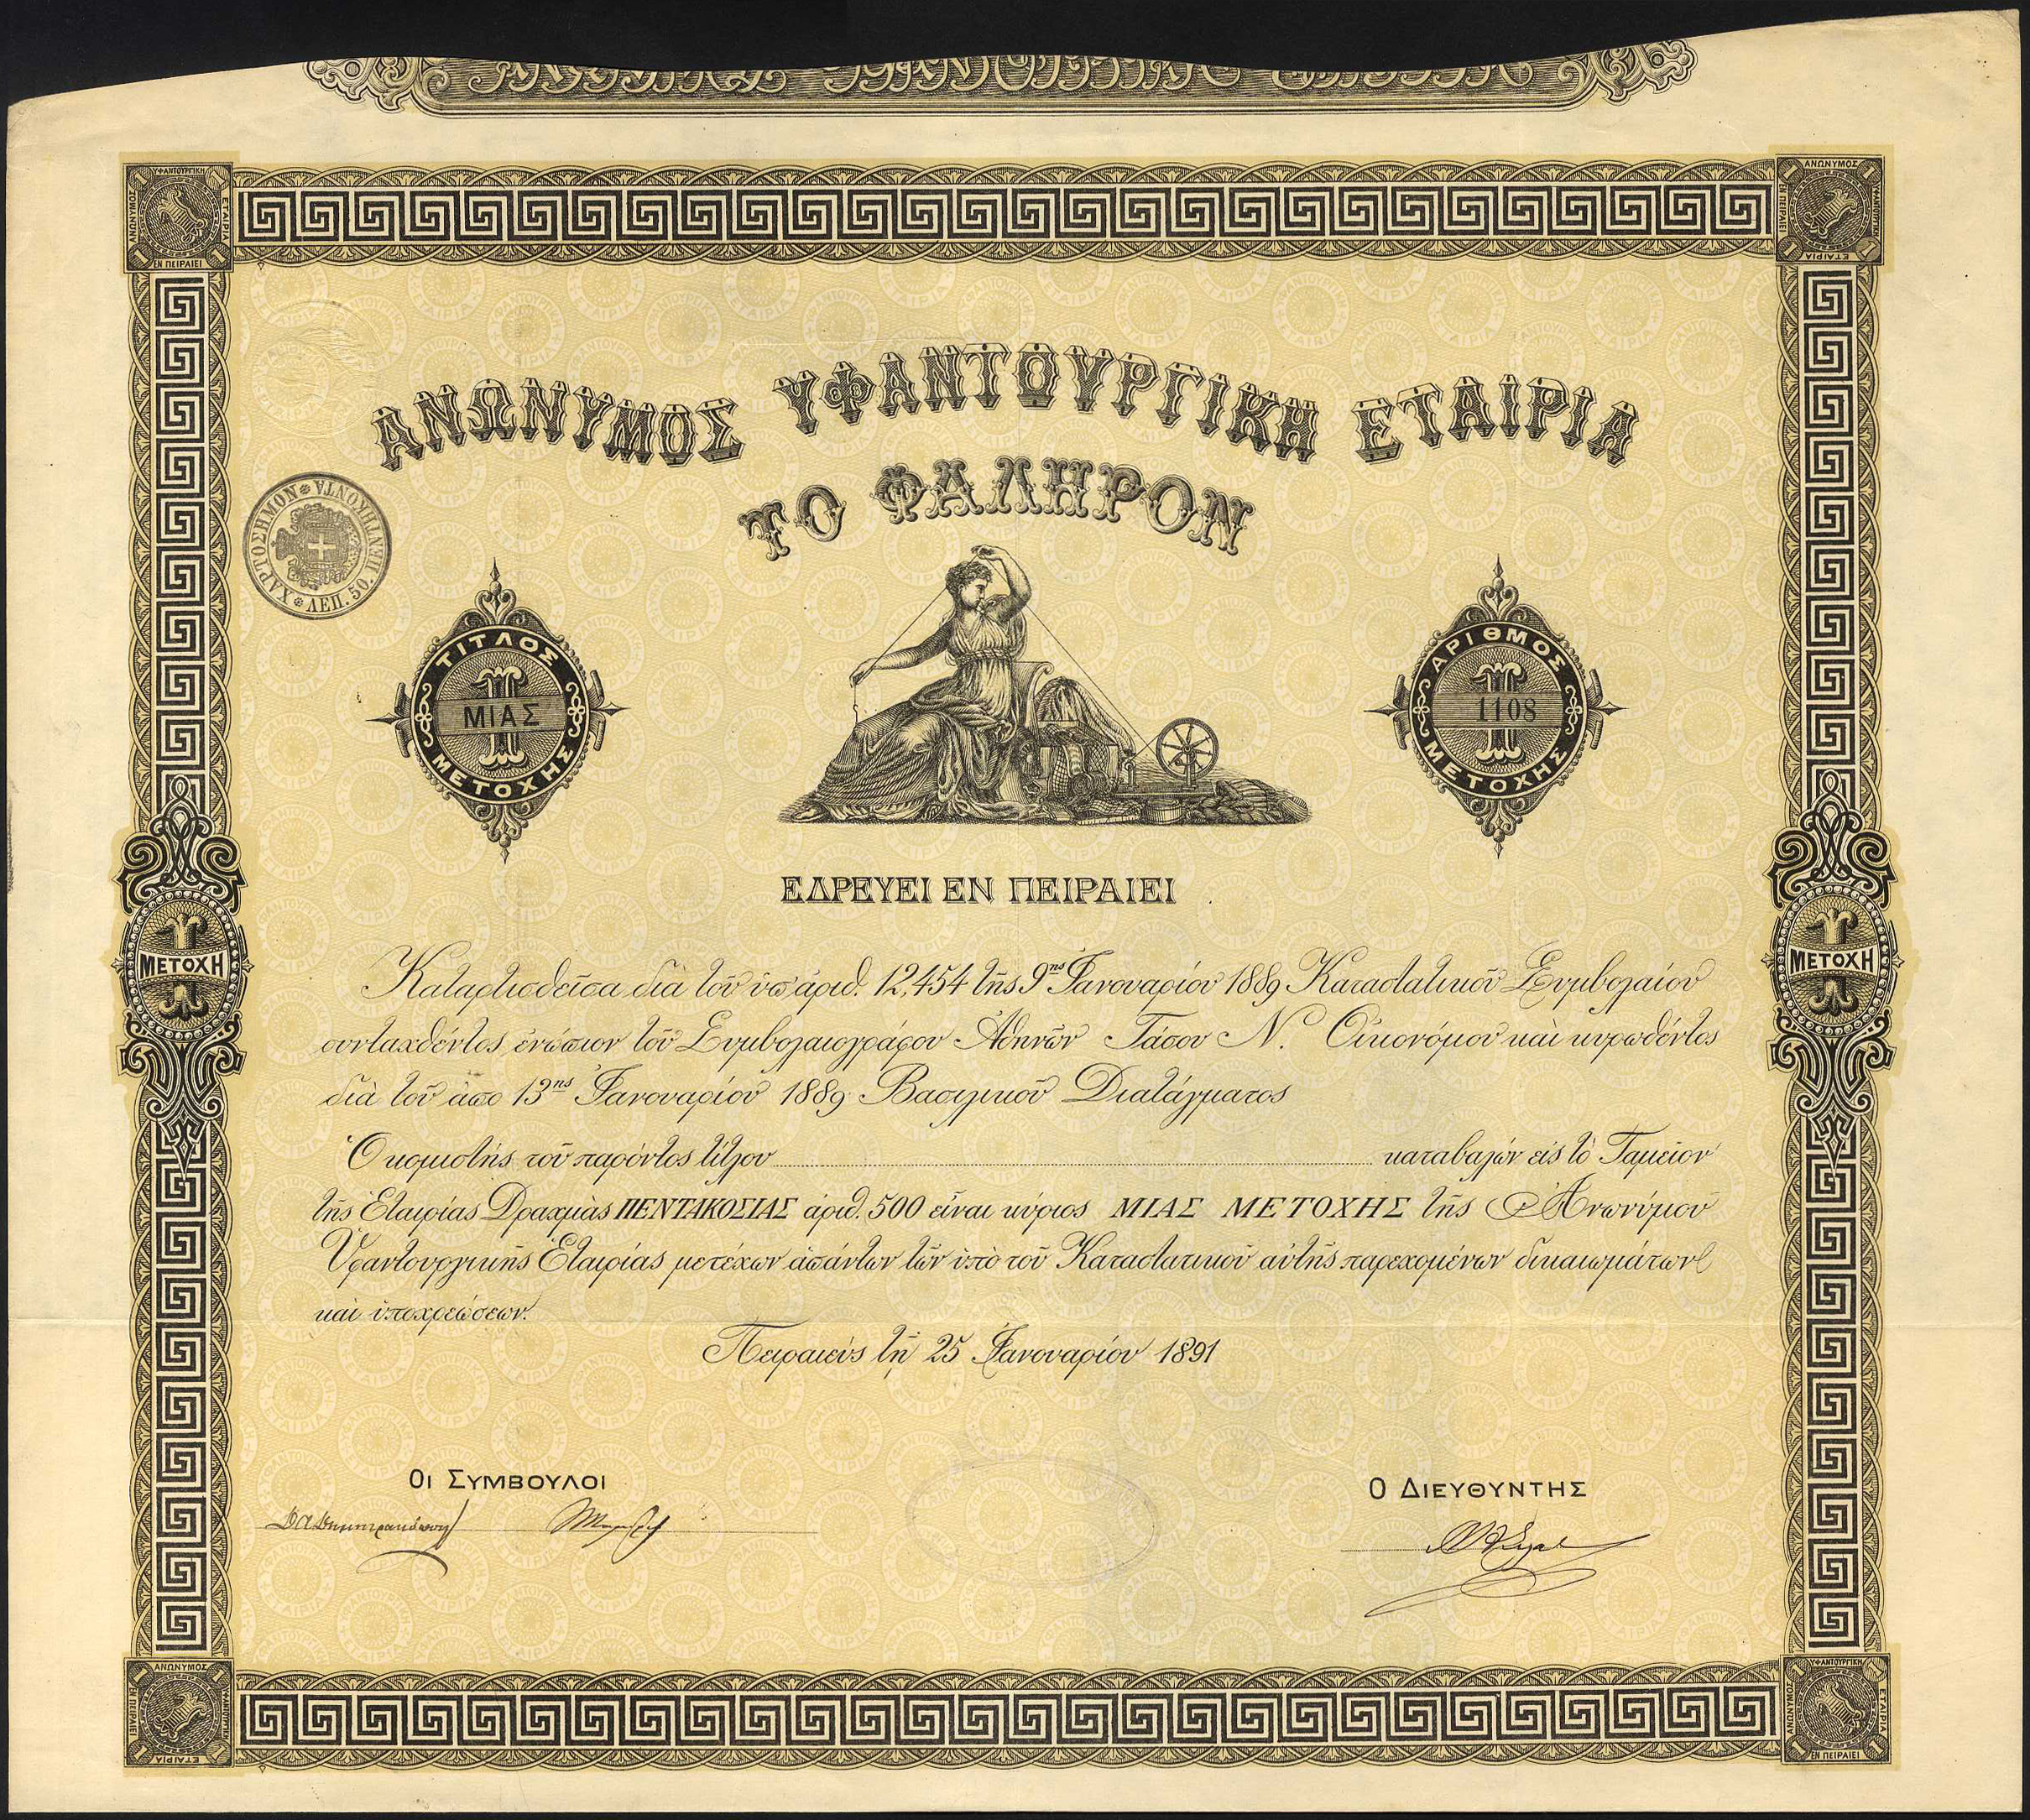 ΑΝΩΝΥΜΟΣ ΥΦΑΝΤΟΥΡΓΙΚΗ ΕΤΑΙΡΙΑ
ΤΟ ΦΑΛΗΡΟΝ
ΧΑΡΤΟΣΗΜΟΝ ΠΕΝΤΗΚΟΝΤΑ ΛΕΠ. 50
ΤΙΤΛΟΣ
ΜΙΑΣ
ΜΕΤΟΧΗΣ
ΑΡΙΘΜΟΣ
1108
ΜΕΤΟΧΗΣ
ΕΔΡΕΥΕΙ ΕΝ ΠΕΙΡΑΙΕΙ
1 ΜΕΤΟΧΗ
1 ΜΕΤΟΧΗ
Καταρτισθεῖσα διὰ τοῦ ὑπ' ἀριθ. 12,454 τῆς 9ης Ἰανουαρίου 1889 Καταστατικοῦ Συμβολαίου
συνταχθέντος ἐνώπιον τοῦ Συμβολαιογράφου Ἀθηνῶν Τάσου Ν. Οἰκονόμου καὶ κυρωθέντος
διὰ τοῦ ἀπὸ 13ης Ἰανουαρίου 1889 Βασιλικοῦ Διατάγματος
Ὁ κομιστὴς τοῦ παρόντος τίτλου καταβαλὼν εἰς τὸ Ταμεῖον
τῆς Ἑταιρίας Δραχμὰς ΠΕΝΤΑΚΟΣΙΑΣ ἀριθ. 500 εἶναι κύριος ΜΙΑΣ ΜΕΤΟΧΗΣ τῆς Ἀνωνύμου
Ὑφαντουργικῆς Ἑταιρίας μετέχων ἁπάντων τῶν ὑπὸ τοῦ Καταστατικοῦ αὐτῆς παρεχομένων δικαιωμάτων
καὶ ὑποχρεώσεων.
Πειραιεὺς τῇ 25 Ἰανουαρίου 1891
ΟΙ ΣΥΜΒΟΥΛΟΙ
Ο ΔΙΕΥΘΥΝΤΗΣ
ΑΝΩΝΥΜΟΣ ΥΦΑΝΤΟΥΡΓΙΚΗ ΕΤΑΙΡΙΑ ΕΝ ΠΕΙΡΑΙΕΙ
ΑΝΩΝΥΜΟΣ ΥΦΑΝΤΟΥΡΓΙΚΗ ΕΤΑΙΡΙΑ ΕΝ ΠΕΙΡΑΙΕΙ
ΑΝΩΝΥΜΟΣ ΥΦΑΝΤΟΥΡΓΙΚΗ ΕΤΑΙΡΙΑ ΕΝ ΠΕΙΡΑΙΕΙ
ΑΝΩΝΥΜΟΣ ΥΦΑΝΤΟΥΡΓΙΚΗ ΕΤΑΙΡΙΑ ΕΝ ΠΕΙΡΑΙΕΙ